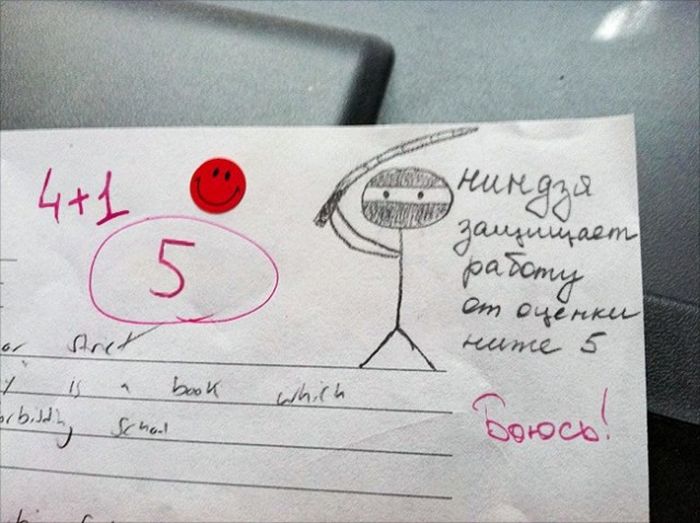 4+1
5
ниндзя
защищает
работу
от оценки
ниже 5
Боюсь!
strict
is a book which
School